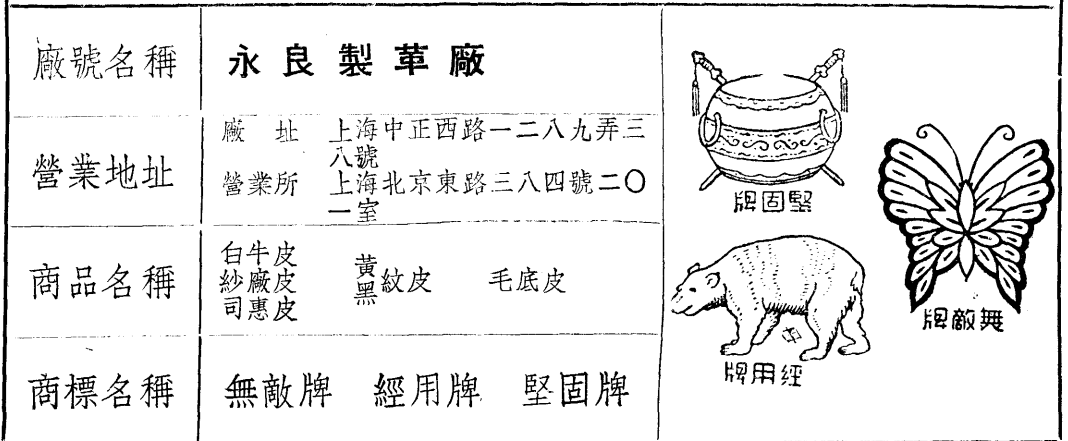 廠號名稱
永良製革廠
營業地址
廠址 上海中正西路一二八九弄三
八號
營業所 上海北京東路三八四號二〇
一室
商品名稱
白牛皮
紗廠皮
司惠皮
黃
黑
紋皮
毛底皮
商標名稱
無敵牌 經用牌 堅固牌
牌固堅
牌敵無
牌用經